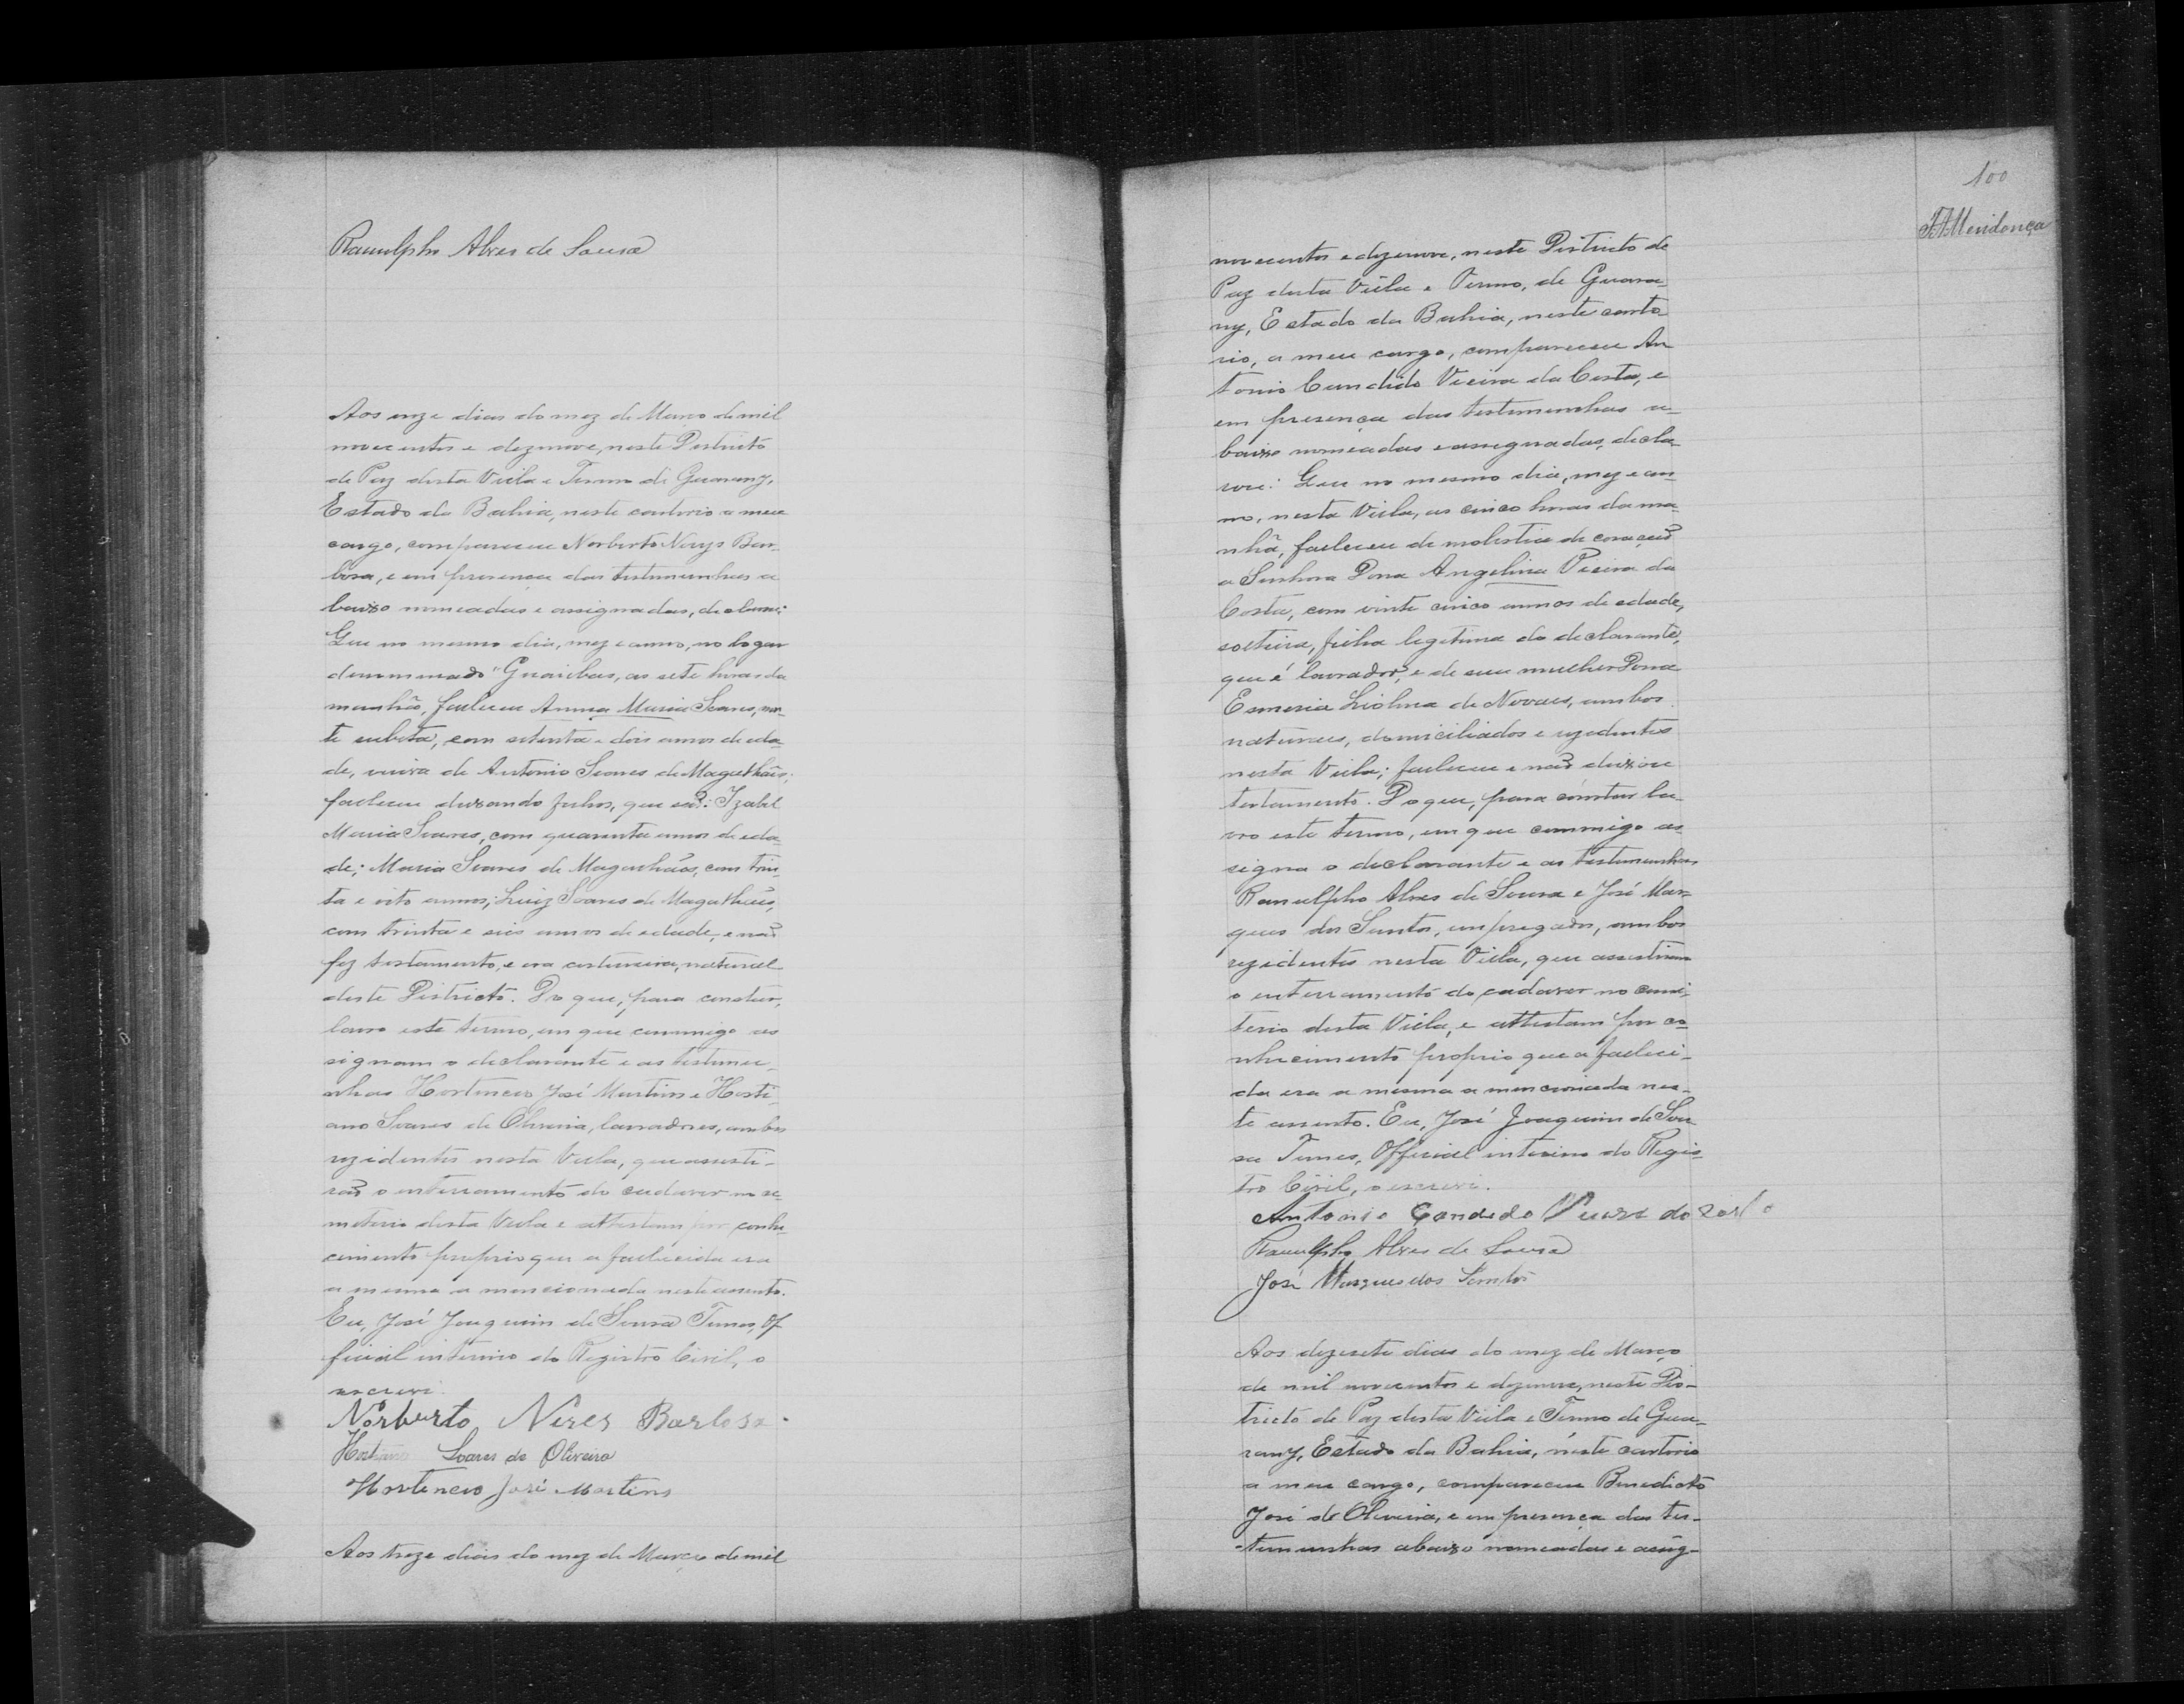 Ranulpho Alves de Sousa
Aos onze dias do mez de Março de mil
novecentos e dezenove, neste Districto
de Paz desta Villa e Termo de Guarany,
Estado da Bahia, neste cartorio a meu
cargo, compareceu Norberto Nerys Bar-
bosa, e em presença das testimunhas a
baixo nomeadas e assignadas, declarou:
Que no mesmo dia, mez e anno, no logar
denominado "Guaribas, as sete horas da
manhã, falleceu Anna Maria Soares, mor-
te subita, com setenta e dois annos de eda-
de, viuva de Antonio Soares de Magalhães;
falleceu deixando filhos, que são: Izabel
Maria Soares, com quarenta annos de eda-
de; Maria Soares de Magalhães, com trin-
ta e oito annos; Luiz Soares de Magalhães,
com trinta e seis annos de edade, e não
fez testamento, e era costureira, natural
deste Districto. Do que, para constar,
lavro este termo, em que commigo as
signam o declarante e as testimu-
nhas Hortencio José Martins e Horti-
ano Soares de Oliveira, lavradores, ambos
rezidentes nesta Villa, que assisti-
rão o enterramento do cadaver no ce-
miterio desta Villa e attestam por conhe
cimento proprio que a fallecida era
a mesma a mencionada neste assento.
Eu, José Joaquim de Sousa Tunes, Of
ficial interino do Registro Civil, o
escrevi.
Norberto Neres Barbosa.
Hortiano Soares de Oliveira
Hortencio José Martins
Aos treze dias do mez de Março de mil
100
novecentos e dezenove, neste Districto de
Paz desta Villa e Termo, de Guara-
ny, Estado da Bahia, neste carto-
rio, a meu cargo, compareceu An
tonio Candido Vieira da Costa, e
em presença das testimunhas a-
baixo nomeadas e assignadas, decla-
rou: Que no mesmo dia, mez e an-
no, nesta Villa, as cinco horas da ma-
nhã, falleceu de molestia de coração
a Senhora Dona Angelina Vieira da
Costa, com vinte cinco annos de edade,
solteira, filha legitima do declarante,
que é lavrador, e de sua mulher Dona
Esmeria Liolina de Novaes, ambos
naturaes, domiciliados e rezidentes
nesta Villa; falleceu e não deixou
testamento. Do que, para constar la-
vro este termo, em que commigo as-
signa o declarante e as testimunhas
Ranulpho Alves de Sousa e José Mar-
ques dos Santos, empregados, ambos
rezidentes nesta Villa, que assistiram
o enterramento do cadaver no cemi-
terio desta Villa, e attestam por co-
nhecimento proprio que a falleci-
da era a mesma a mencionada nes-
te assento. Eu, José Joaquim de Sou
sa Tunes, Official interino do Regis-
tro Civil, o escrevi.
Antonio Candido Vieira da Costa
Ranulpho Alves de Sousa
José Marques dos Santos
Aos dezesete dias do mez de Março
de mil novecentos e dezenove, neste Dis-
tricto de Paz desta Villa e Termo de Gua-
rany, Estado da Bahia, neste cartorio
a meu cargo, compareceu Benedicto
José de Oliveira, e em presença das tes-
timunhas abaixo nomeadas e assig-